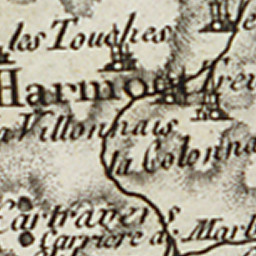 les Touches
Harmo
Villonnais
la Colonna
Cartravers.
Carriere d. Marb